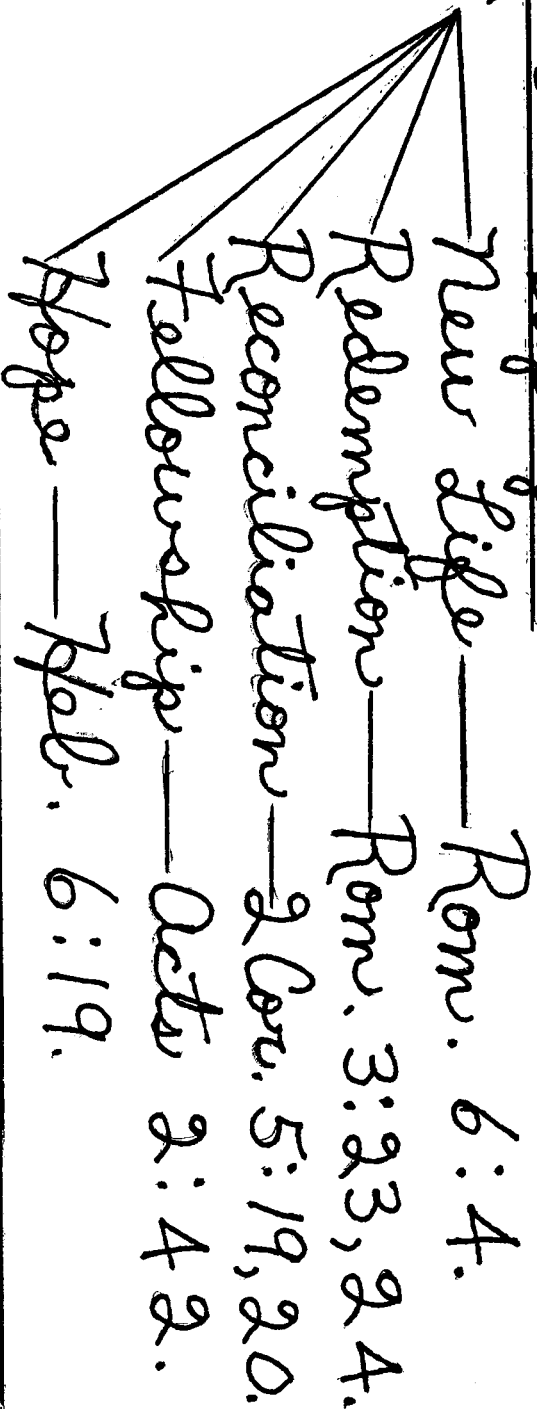 New Life — Rom. 6:4.
Redemption — Rom. 3:23,24.
Reconciliation — 2 Cor. 5:19,20.
Fellowship — Acts 2:42.
Hope — Heb. 6:19.